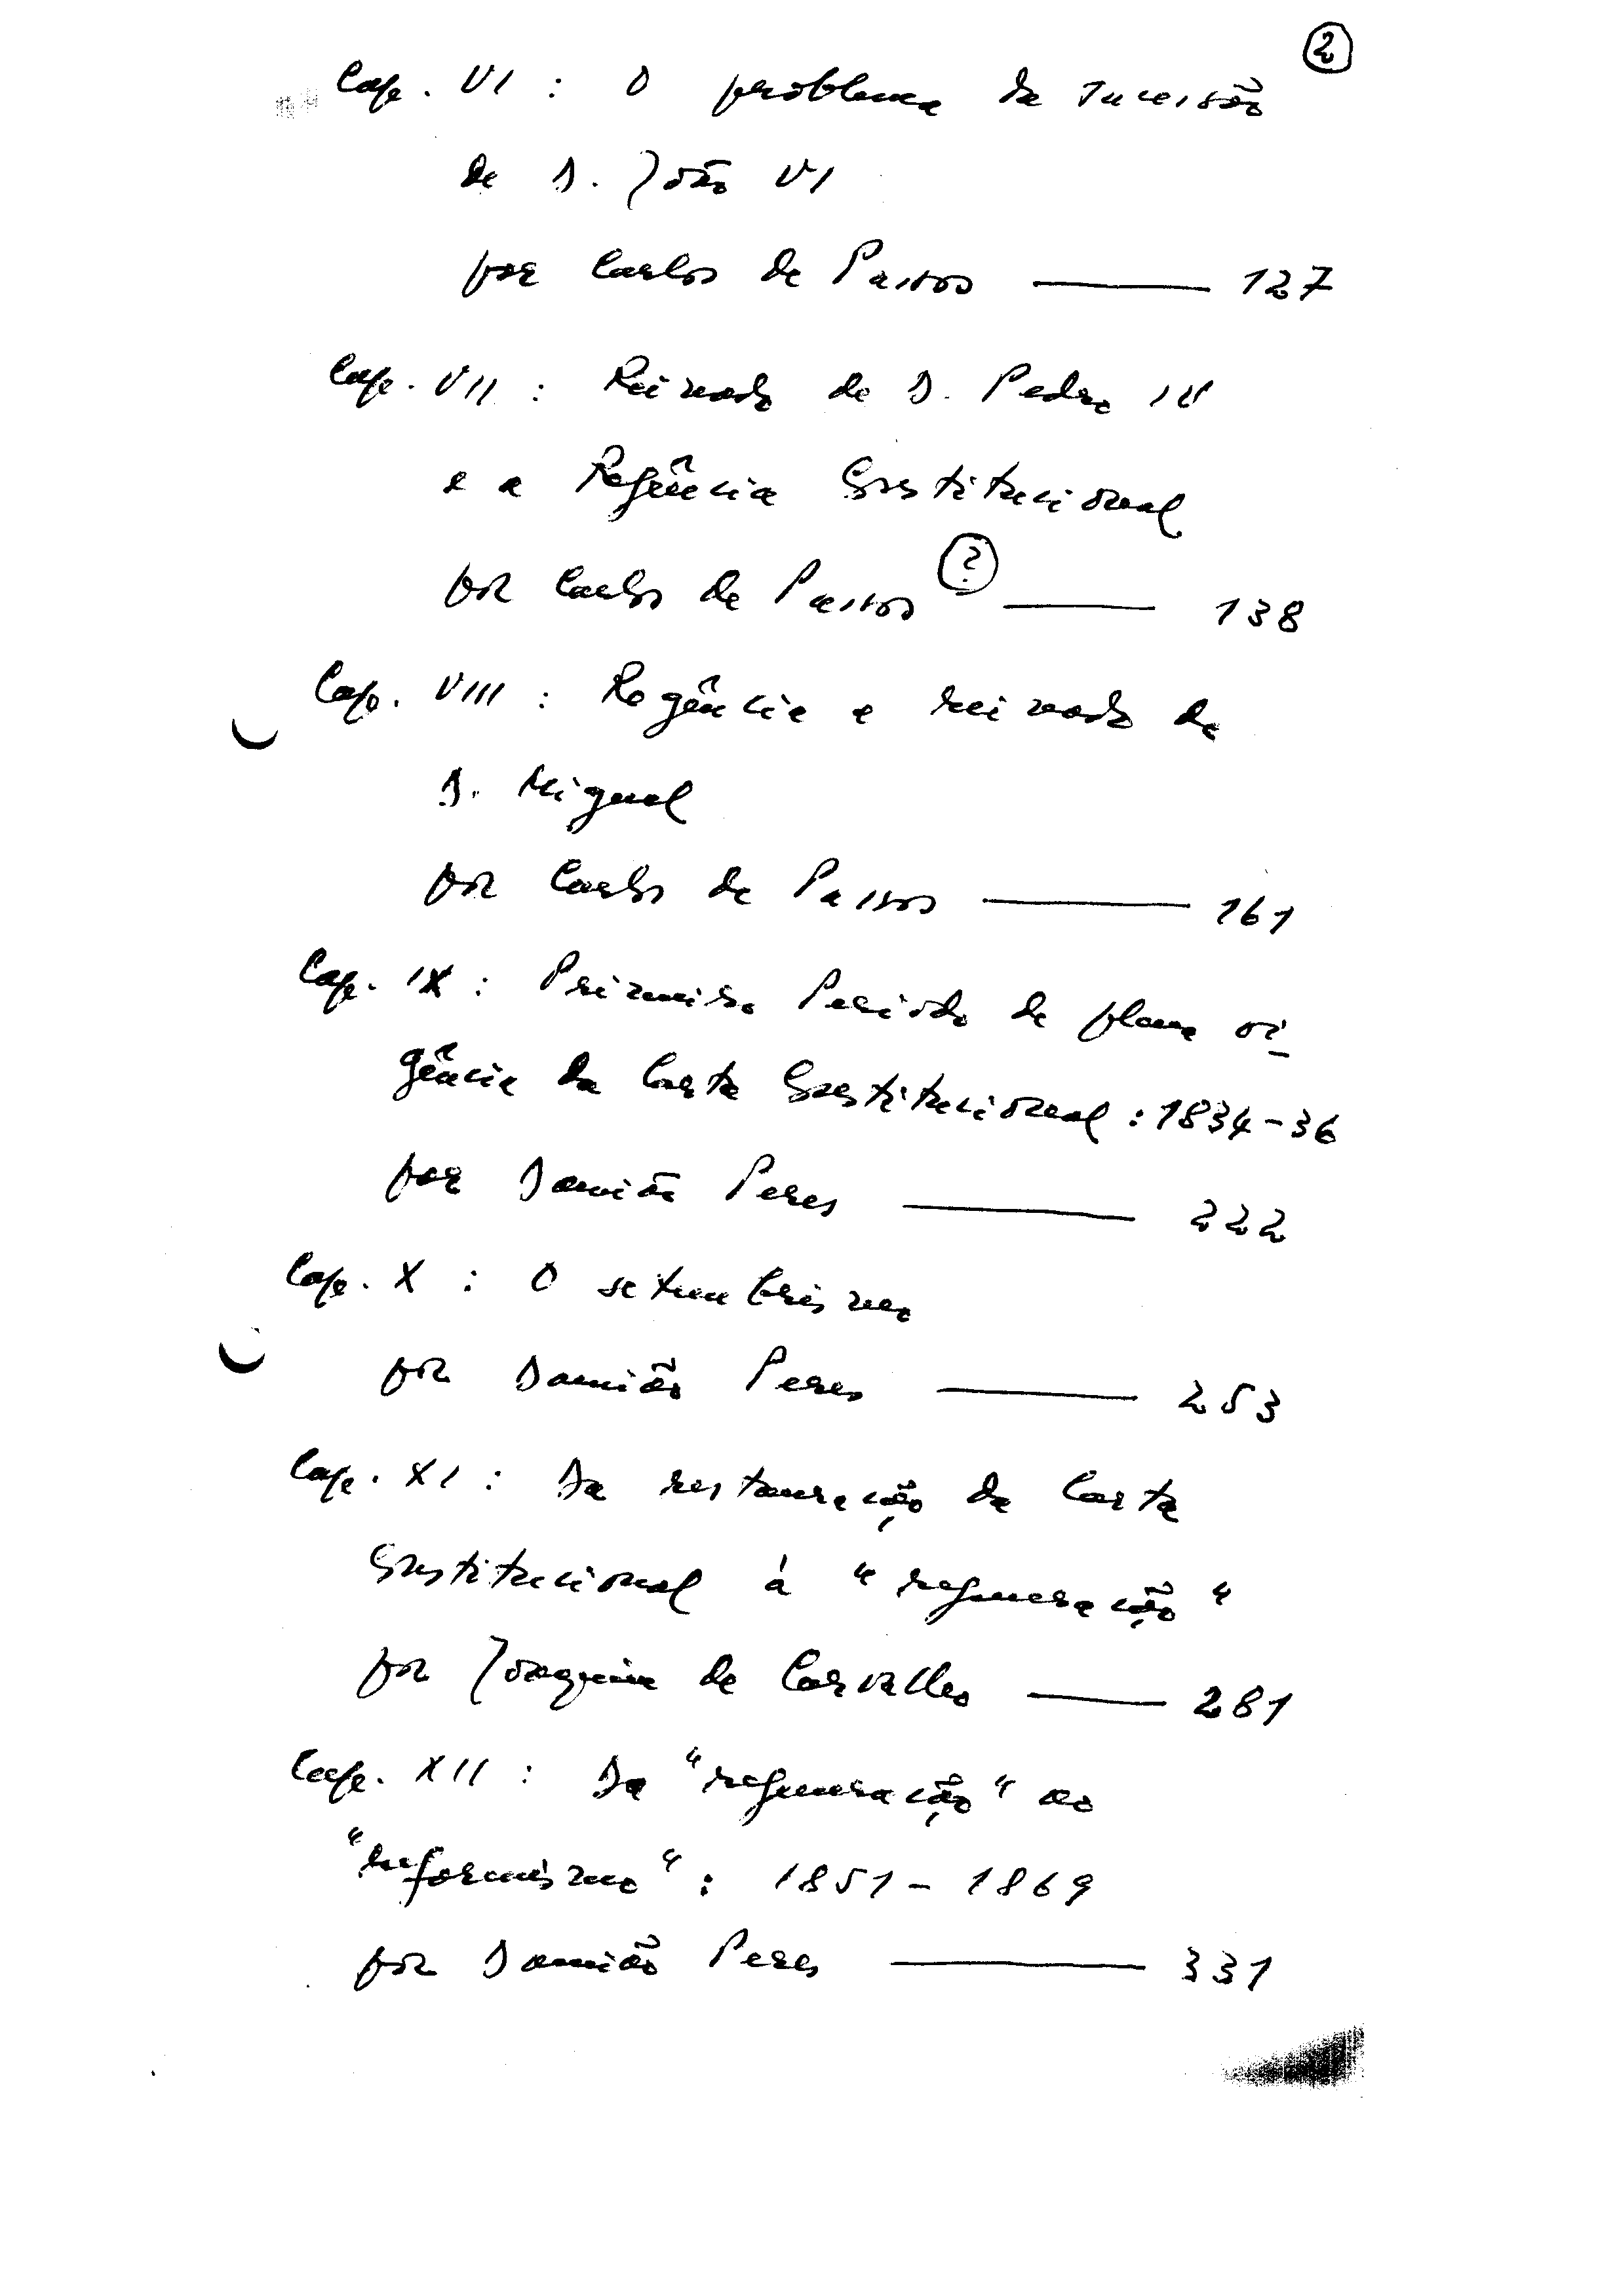 2
Cap. VI : O problema da sucessão
de D. João VI
por Carlos de Passos —— 127
Cap. VII : Reinado de D. Pedro IV
e a Regência Constitucional
por Carlos de Passos ? —— 138
Cap. VIII : Regência e reinado de
D. Miguel
por Carlos de Passos —— 161
Cap. IX : Primeiro Período de plena vi-
gência da Carta Constitucional : 1834-36
por Damião Peres —— 222
Cap. X : O setembrismo
por Damião Peres —— 253
Cap. XI : Da restauração da Carta
Constitucional à "regeneração"
por Joaquim de Carvalho —— 281
Cap. XII : Da "regeneração" ao
"reformismo" : 1851 - 1869
por Damião Peres —— 331